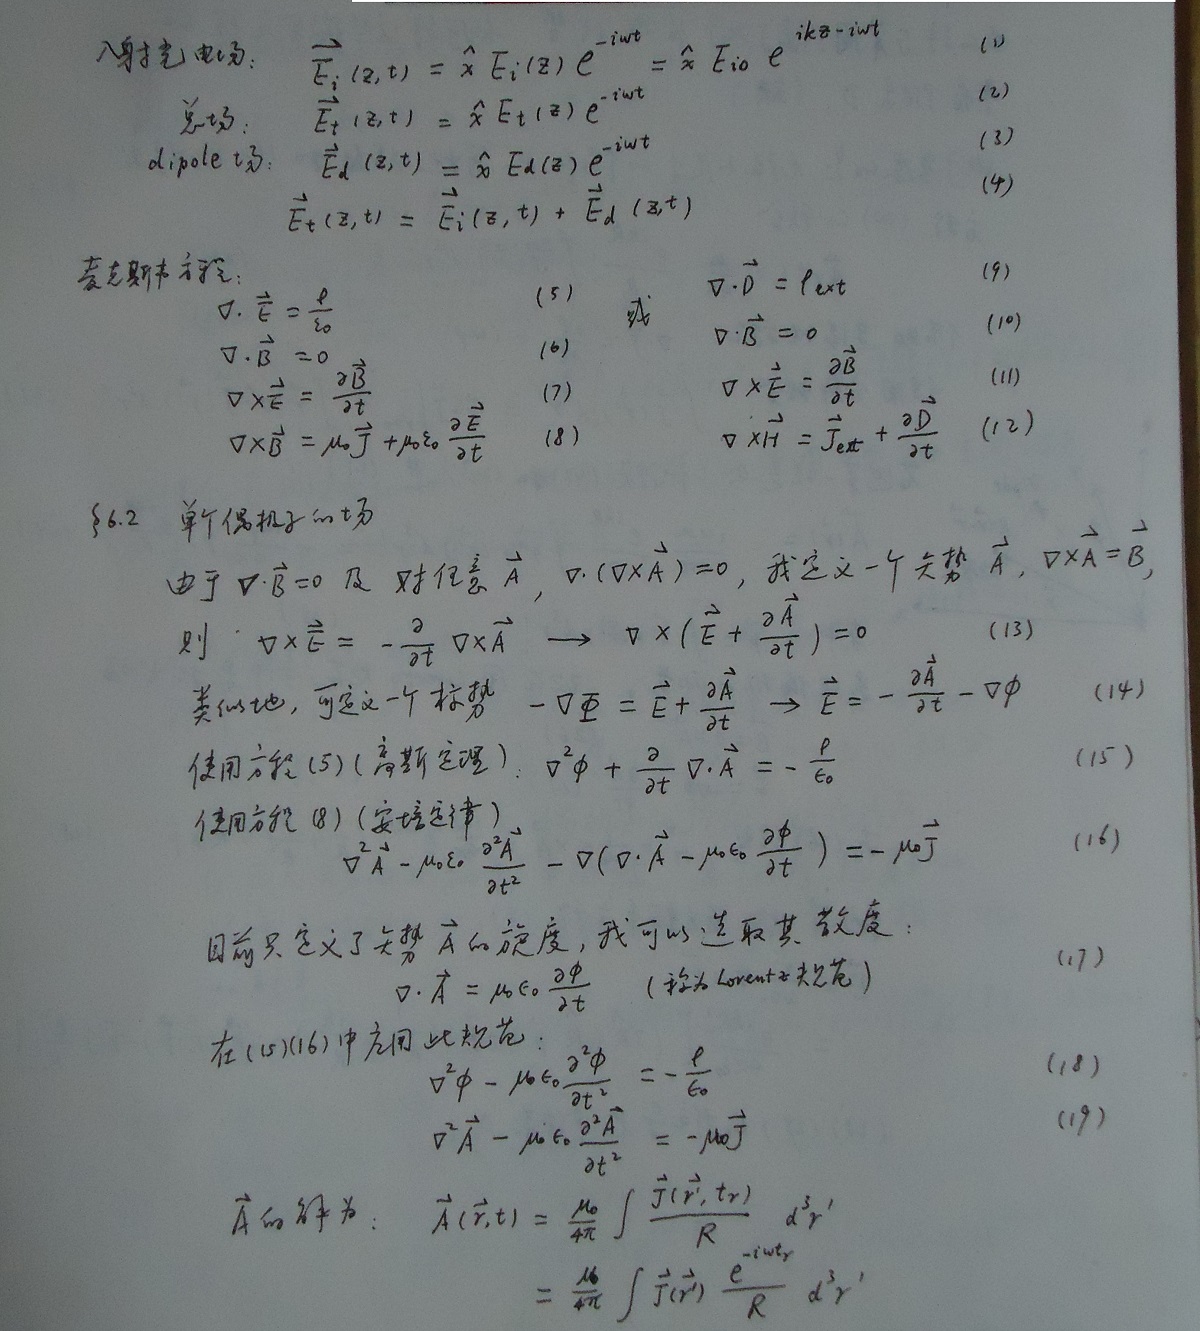 入射光电场: $\vec{E}_i(z,t) = \hat{x} E_i(z) e^{-i\omega t} = \hat{x} E_{i0} e^{ikz-i\omega t}$ (1)
总场: $\vec{E}_t(z,t) = \hat{x} E_t(z) e^{-i\omega t}$ (2)
dipole场: $\vec{E}_d(z,t) = \hat{x} E_d(z) e^{-i\omega t}$ (3)
$\vec{E}_t(z,t) = \vec{E}_i(z,t) + \vec{E}_d(z,t)$ (4)
麦克斯韦方程:
$\nabla\cdot\vec{E} = \frac{\rho}{\varepsilon_0}$ (5) 或 $\nabla\cdot\vec{D} = \rho_{ext}$ (9)
$\nabla\cdot\vec{B} = 0$ (6) $\nabla\cdot\vec{B} = 0$ (10)
$\nabla\times\vec{E} = \frac{\partial\vec{B}}{\partial t}$ (7) $\nabla\times\vec{E} = \frac{\partial\vec{B}}{\partial t}$ (11)
$\nabla\times\vec{B} = \mu_0\vec{J} + \mu_0\varepsilon_0\frac{\partial\vec{E}}{\partial t}$ (8) $\nabla\times\vec{H} = \vec{J}_{ext} + \frac{\partial\vec{D}}{\partial t}$ (12)
§6.2 单个偶极子的场
由于 $\nabla\cdot\vec{B}=0$ 及 对任意 $\vec{A}$, $\nabla\cdot(\nabla\times\vec{A})=0$, 我定义一个矢势 $\vec{A}$, $\nabla\times\vec{A}=\vec{B}$,
则 $\nabla\times\vec{E} = -\frac{\partial}{\partial t}\nabla\times\vec{A} \longrightarrow \nabla\times(\vec{E}+\frac{\partial\vec{A}}{\partial t})=0$ (13)
类似地, 可定义一个标势 $-\nabla\Phi = \vec{E}+\frac{\partial\vec{A}}{\partial t} \rightarrow \vec{E} = -\frac{\partial\vec{A}}{\partial t} - \nabla\phi$ (14)
使用方程(5)(高斯定理): $\nabla^2\phi + \frac{\partial}{\partial t}\nabla\cdot\vec{A} = -\frac{\rho}{\epsilon_0}$ (15)
使用方程(8)(安培定律)
$\nabla^2\vec{A} - \mu_0\varepsilon_0\frac{\partial^2\vec{A}}{\partial t^2} - \nabla(\nabla\cdot\vec{A} - \mu_0\epsilon_0\frac{\partial\phi}{\partial t}) = -\mu_0\vec{J}$ (16)
目前只定义了矢势 $\vec{A}$ 的旋度, 我可以选取其散度:
$\nabla\cdot\vec{A} = \mu_0\epsilon_0\frac{\partial\phi}{\partial t}$ (称为Lorentz规范) (17)
在(15)(16)中应用此规范:
$\nabla^2\phi - \mu_0\epsilon_0\frac{\partial^2\phi}{\partial t^2} = -\frac{\rho}{\epsilon_0}$ (18)
$\nabla^2\vec{A} - \mu_0\epsilon_0\frac{\partial^2\vec{A}}{\partial t^2} = -\mu_0\vec{J}$ (19)
$\vec{A}$的解为: $\vec{A}(\vec{r},t) = \frac{\mu_0}{4\pi}\int\frac{\vec{J}(\vec{r}',t_r)}{R} d^3r'$
$= \frac{\mu_0}{4\pi}\int\vec{J}(\vec{r}')\frac{e^{-i\omega t_r}}{R} d^3r'$